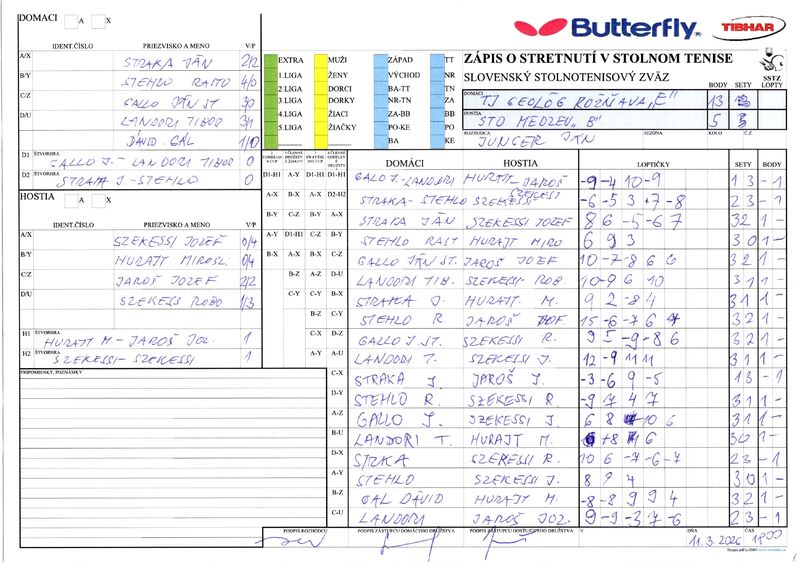 DOMÁCI A X
Butterfly
TIBHAR
IDENT.ČÍSLO PRIEZVISKO A MENO V/P
A/X STRAKA JÁN 2/2
B/Y STEHLO RASTO 4/0
C/Z GALLO JÁN ST 3/0
D/U LANDORI TIBOR 3/1
DÁVID GÁL 1/0
D1 ŠTVORHRA GALLO J. - LANDORI TIBOR 0
D2 ŠTVORHRA STRAKA J - STEHLO 0
HOSTIA A X
IDENT.ČÍSLO PRIEZVISKO A MENO V/P
A/X SZEKESSI JOZEF 0/4
B/Y HURAJT MIROSL. 0/4
C/Z JAROŠ JOZEF 2/2
D/U SZEKESS ROBO 1/3
H1 ŠTVORHRA HURAJT M - JAROŠ JOZ. 1
H2 ŠTVORHRA SZEKESSI - SZEKESSI 1
PRIPOMIENKY, POZNÁMKY
EXTRA MUŽI ZÁPAD TT
1.LIGA ŽENY VÝCHOD NR
2.LIGA DORCI BA-TT TN
3.LIGA DORKY NR-TN ZA
4.LIGA ŽIACI ZA-BB BB
5.LIGA ŽIAČKY PO-KE PO
BA KE
ZÁPIS O STRETNUTÍ V STOLNOM TENISE
SLOVENSKÝ STOLNOTENISOVÝ ZVÄZ
SSTZ
BODY SETY LOPTY
DOMÁCI TJ GEOLÓG ROŽŇAVA „E“ 13
HOSTIA STO MEDZEV "B" 5
ROZHODCA JUNGER JÁN SEZÓNA KOLO Č.
DOMÁCI HOSTIA LOPTIČKY SETY BODY
D1-H1 A-Y D1-H1 D1-H1 GALO J. - LANDORI HURAJT - JAROŠ -9 -4 10 -9 1 3 - 1
A-X B-X A-X D2-H2 STRAKA - STEHLO SZEKESSI - SZEKESSI -6 -5 3 +7 -8 2 3 - 1
B-Y C-Z B-Y A-X STRAKA JÁN SZEKESSI JOZEF 8 6 -5 -6 7 3 2 1 -
A-Y D1-H1 C-Z B-Y STEHLO RAST HURAJT MIRO 6 9 3 3 0 1 -
B-X A-X C-Z GALLO JÁN ST JAROŠ JOZEF 10 -7 -8 6 6 3 2 1 -
B-Z A-Z D-U LANDORI TIB. SZEKESSI ROB 10 -9 6 10 3 1 1 -
C-Y C-Y B-X A-Y STRAKA J. HURAJT M. 9 2 -8 4 3 1 1 -
B-Z C-Y B-X STEHLO R. JAROŠ JOF. 15 -6 -7 6 7 3 2 1 -
C-X D-Z GALLO J. ST. SZEKESSI R. 9 5 -9 -8 6 3 2 1 -
A-Y A-U LANDORI T. SZEKESSI J. 12 -9 11 11 3 1 1 -
C-X STRAKA J. JAROŠ J. -3 -6 9 -5 1 3 - 1
D-Y STEHLO R. SZEKESSI R. -9 7 4 7 3 1 1 -
A-Z GALLO J. SZEKESSI J. 6 8 -10 6 3 1 1 -
B-U LANDORI T. HURAJT M. 6 +8 6 3 0 1 -
D-X SZEKESSI R. 10 6 -7 -6 -7 2 3 - 1
A-Y STEHLO SZEKESSI J. 8 7 4 3 0 1 -
B-Z GÁL DÁVID HURAJT M -8 -8 9 9 4 3 2 1 -
C-U LANDORI JAROŠ JOZ. 9 -9 -3 7 6 2 3 - 1
PODPIS ROZHODCU PODPIS ZÁSTUPCU DOMÁCEHO DRUŽSTVA PODPIS ZÁSTUPCU HOSŤUJÚCEHO DRUŽSTVA V DŇA
11.3.2026 18:00